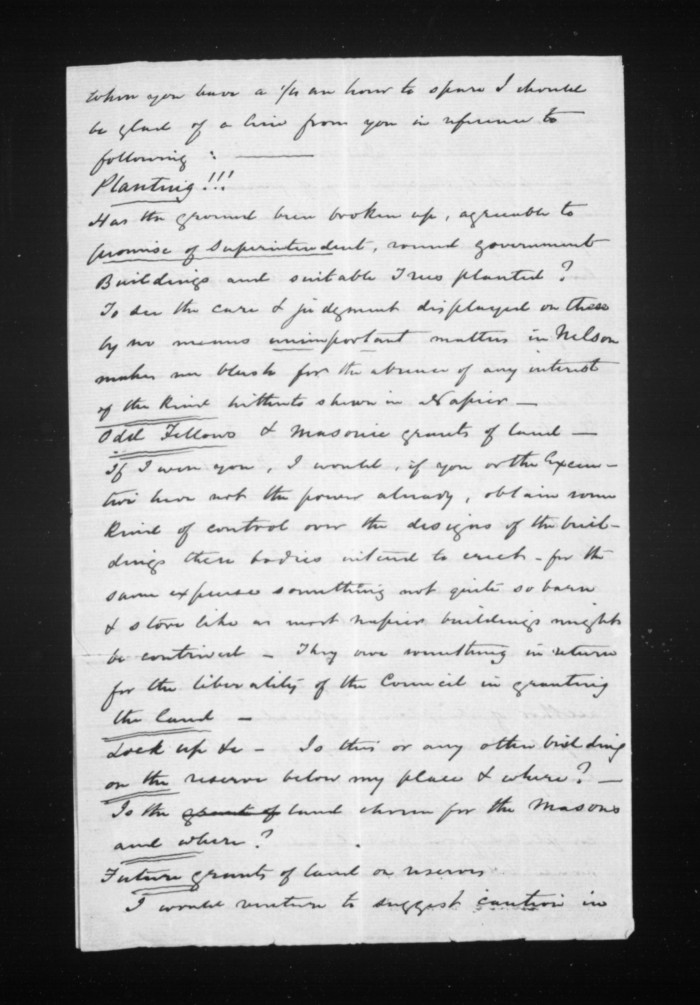 When you have a 1/4 an hour to spare I should
be glad of a line from you in reference to
following : ———
Planting!!!
Has the ground been broken up, agreeable to
promise of Superintendent, round government
Buildings and suitable Trees planted?
To see the care & judgment displayed on these
by no means unimportant matters in Nelson
makes me blush for the absence of any interest
of the kind hitherto shown in Napier —
Odd Fellows & Masonic grants of land —
If I were you, I would, if you or the Execu-
tive have not the power already, obtain some
kind of control over the designs of the buil-
dings these bodies intend to erect - for the
same expense something not quite so barn
& store like as most Napier buildings might
be contrived — They owe something in return
for the liberality of the Council in granting
the land —
Lock up &c — Is this or any other building
on the reserve below my place & where? —
Is the grant of land chosen for the Masons
and where?
Future grants of land or reserves
I would venture to suggest caution in